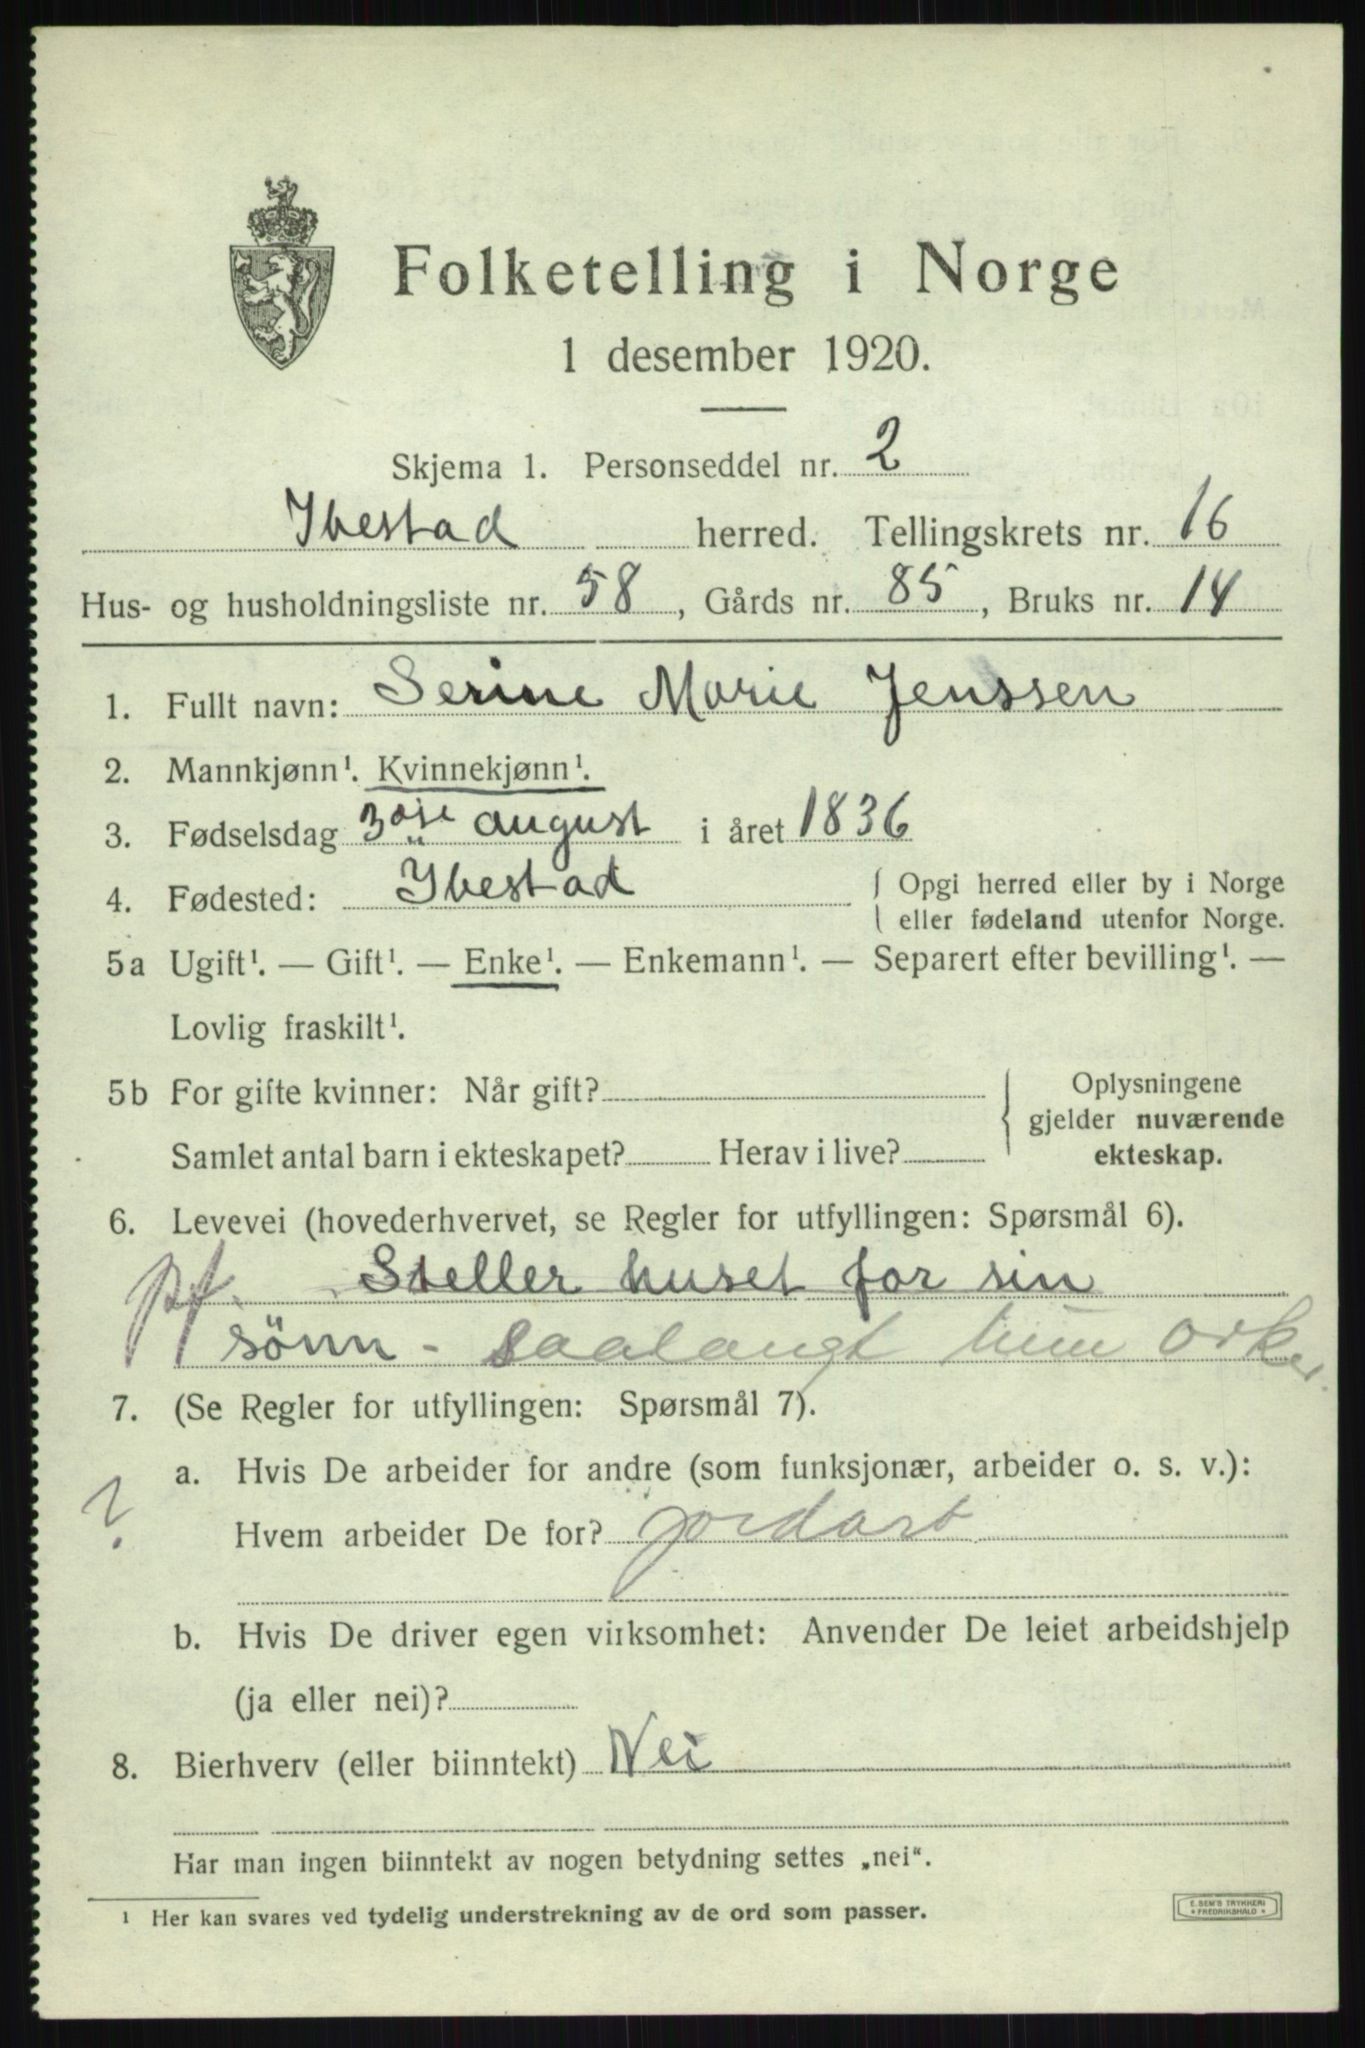 Folketelling i Norge
1 desember 1920.
Skjema 1. Personseddel nr. 2
Ibestad herred. Tellingskrets nr. 16
Hus- og husholdningsliste nr. 58, Gårds nr. 85, Bruks nr. 14
1. Fullt navn: Serine Marie Jenssen
2. Mannkjønn¹. Kvinnekjønn¹.
3. Fødselsdag 30te august i året 1836
4. Fødested: Ibestad { Opgi herred eller by i Norge
eller fødeland utenfor Norge.
5a Ugift¹. — Gift¹. — Enke¹. — Enkemann¹. — Separert efter bevilling¹. —
Lovlig fraskilt¹.
5b For gifte kvinner: Når gift? { Oplysningene
gjelder nuværende
Samlet antal barn i ekteskapet? Herav i live? ekteskap.
6. Levevei (hovederhvervet, se Regler for utfyllingen: Spørsmål 6).
pf. Steller huset for sin
sønn - saalangt hun orker
7. (Se Regler for utfyllingen: Spørsmål 7).
a. Hvis De arbeider for andre (som funksjonær, arbeider o. s. v.):
? Hvem arbeider De for? jordarb
b. Hvis De driver egen virksomhet: Anvender De leiet arbeidshjelp
(ja eller nei)?
8. Bierhverv (eller biinntekt) Nei
Har man ingen biinntekt av nogen betydning settes „nei“.
¹ Her kan svares ved tydelig understrekning av de ord som passer.
E. SEM'S TRYKKERI
* FREDRIKSHALD *